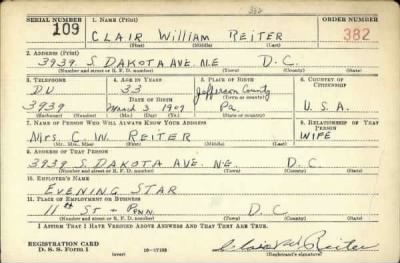 382
SERIAL NUMBER 1. NAME (Print) ORDER NUMBER
109 CLAIR William REITER 382
(First) (Middle) (Last)
2. ADDRESS (Print)
3939 S. DAKOTA AVE. N.E D.C.
(Number and street or R. F. D. number) (Town) (County) (State)
3. TELEPHONE 4. AGE IN YEARS 5. PLACE OF BIRTH 6. COUNTRY OF CITIZENSHIP
DU 33 Jefferson County
DATE OF BIRTH (Town or county)
3939 March 3 1907 Pa. U.S.A.
(Exchange) (Number) (Mo.) (Day) (Yr.) (State or country)
7. NAME OF PERSON WHO WILL ALWAYS KNOW YOUR ADDRESS 8. RELATIONSHIP OF THAT PERSON
Mrs. C. W. REITER WIFE
(Mr., Mrs., Miss) (First) (Middle) (Last)
9. ADDRESS OF THAT PERSON
3939 S. DAKOTA AVE. NE. D.C.
(Number and street or R. F. D. number) (Town) (County) (State)
10. EMPLOYER'S NAME
EVENING STAR
11. PLACE OF EMPLOYMENT OR BUSINESS
11th St + PENN. D.C
(Number and street or R. F. D. number) (Town) (County) (State)
I AFFIRM THAT I HAVE VERIFIED ABOVE ANSWERS AND THAT THEY ARE TRUE.
REGISTRATION CARD
D. S. S. Form 1 (over) Clair W. Reiter
(Registrant's signature)